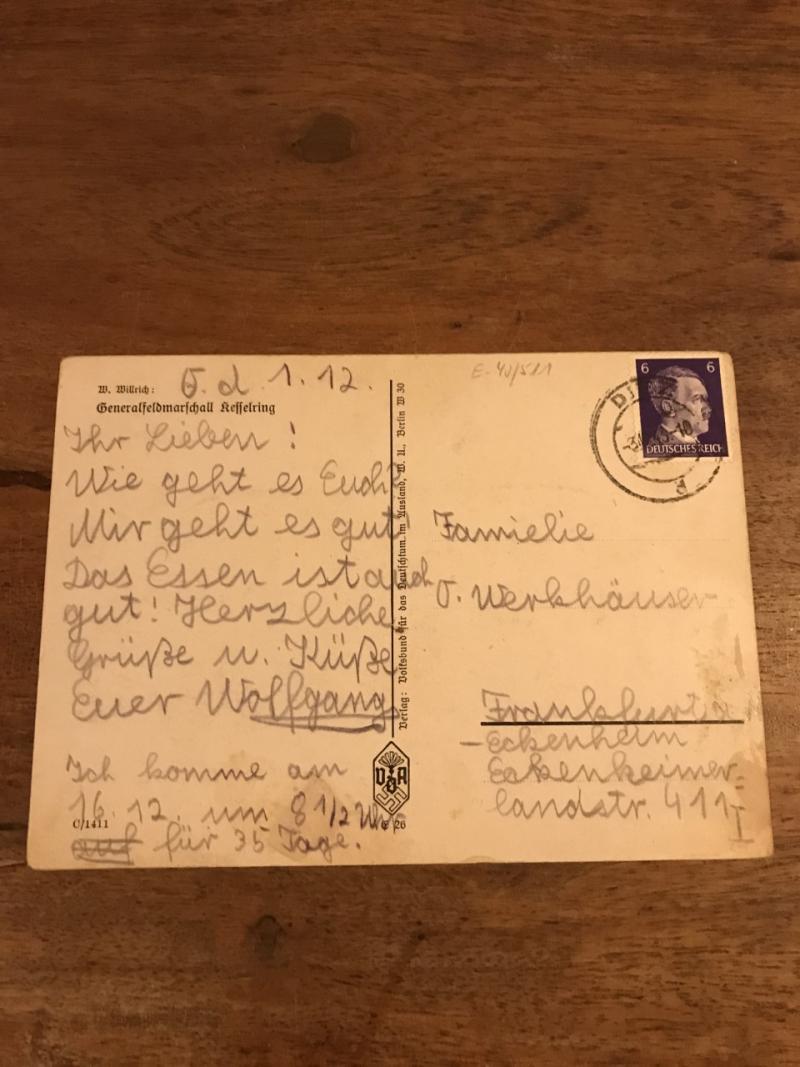 W. Willrich:
d. 1. 12.
Generalfeldmarschall Kesselring
Ihr Lieben!
Wie geht es Euch?
Mir geht es gut!
Das Essen ist auch
gut! Herzliche
Grüße u. Küße
Euer Wolfgang
Ich komme am
16. 12. um 8 1/2 Uhr
auf für 35 Tage.
C/1411
E 26
Verlag: Volksbund für das Deutschtum im Ausland, W. U., Berlin W 30
VDA
6 6
DEUTSCHES REICH
Famielie
Werkhäuser
Frankfurt a
-Eckenheim
Eckenheimer-
landstr. 411 I